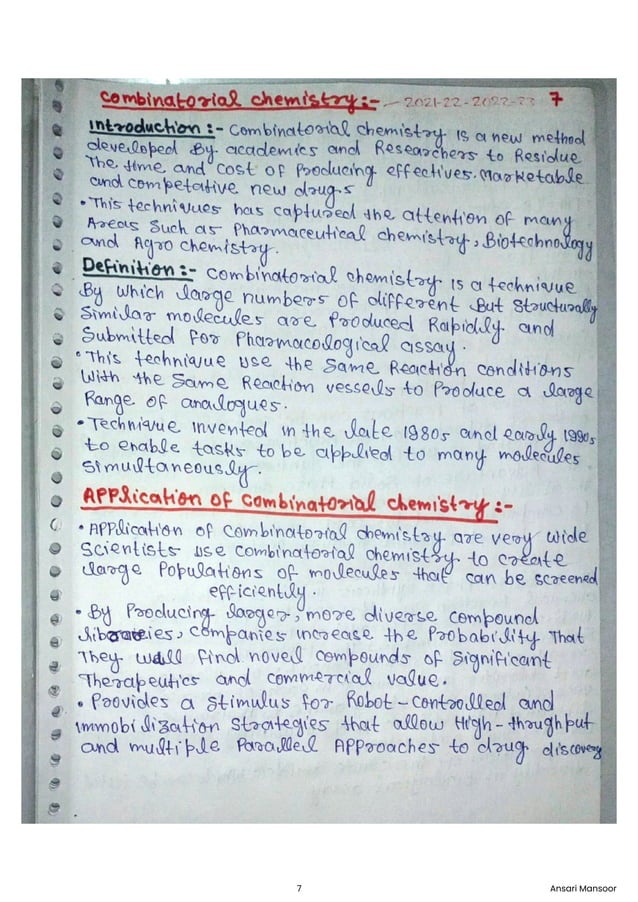 Combinatorial chemistry:- - 2021-22 - 2022-23 7
Introduction :- Combinatorial chemistry is a new method
developed By academics and Researchers to Residue
The time and cost of producing effectives. Marketable
and competative new drugs
• This techniques has captured the attention of many
Areas Such as Pharmaceutical chemistry, Biotechnology
and Agro chemistry.
Definition :- Combinatorial chemistry is a technique
By which large numbers of different But Structurally
Similar molecules are Produced Rapidly and
Submitted for Pharmacological assay.
• This technique use the Same Reaction conditions
With the Same Reaction vessels to Produce a large
Range of analogues.
• Technique invented in the late 1980s and early 1990s
to enable tasks to be applied to many molecules
simultaneously.
Application of combinatorial chemistry :-
• Application of Combinatorial chemistry are very wide
Scientists use combinatorial chemistry to create
large Populations of molecules that can be screened
efficiently.
• By Producing larger, more diverse compound
libraries, companies increase the Probability That
They will find novel compounds of Significant
Therapeutics and commercial value.
• Provides a stimulus for Robot-controlled and
immobilization strategies that allow High-throughput
and multiple Paralled Approaches to drug discovery
7 Ansari Mansoor